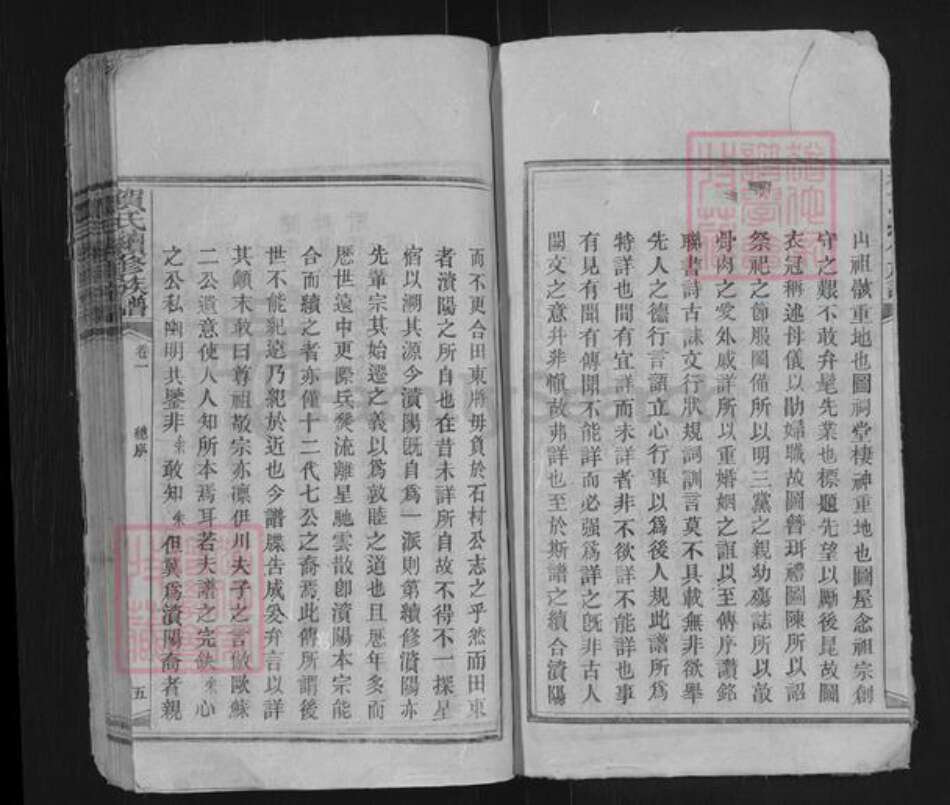 山祖骸重地也圖祠堂棲神重地也圖屋念祖宗創
守之艱不敢弁髦先業也標題先望以勵後昆故圖
衣冠稱述母儀以勖婦職故圖簪珥禮圖陳所以詔
祭祀之節服圖備所以明三黨之親幼殤誌所以敦
骨肉之愛外戚詳所以重婚姻之誼以至傳序讚銘
聯書詩古誄文行狀規詞訓言莫不具載無非欲舉
先人之德行言語立心行事以為後人規此譜所為
特詳也間有宜詳而未詳者非不欲詳不能詳也事
有見有聞有傳聞不能詳而必强為詳之旣非古人
闕文之意幷非愼故弗詳也至於斯譜之續合濆陽
而不更合田東將毋負於石村公志之乎然而田東
者濆陽之所自也在昔未詳所自故不得不一探星
宿以溯其源今濆陽旣自為一派則第續修濆陽亦
先輩宗其始遷之義以為敦睦之道也且歷年多而
歷世遠中更際兵燹流離星馳雲散卽濆陽本宗能
合而續之者亦僅十二代七公之裔焉此傳所謂後
世不能紀遠乃紀於近也今譜牒告成爰弁言以詳
其顛末敢曰尊祖敬宗亦凜伊川夫子之言倣歐蘇
二公遺意使人人知所本焉耳若夫譜之完缺朱心
之公私幽明共鑒非朱敢知朱但冀為濆陽裔者親
賀氏續修族譜
卷一
總序
五